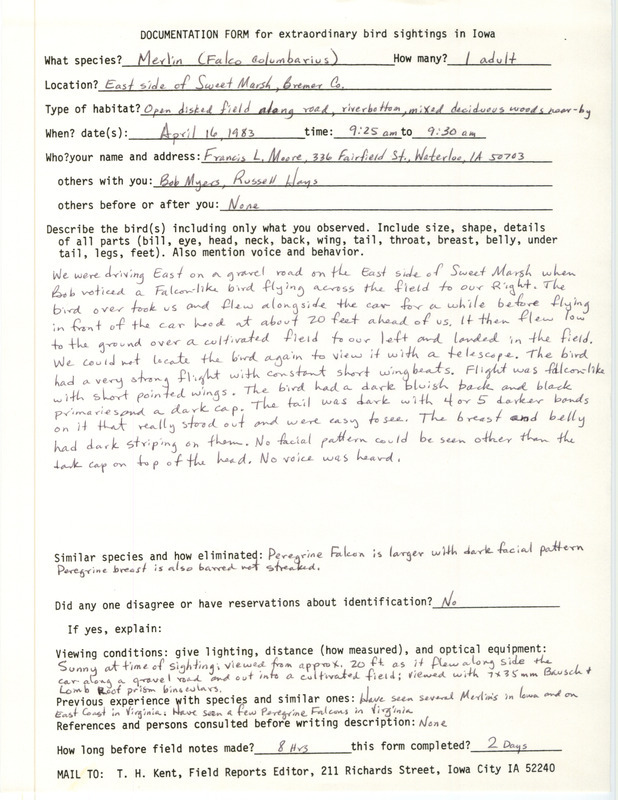 DOCUMENTATION FORM for extraordinary bird sightings in Iowa
What species? Merlin (Falco columbarius) How many? 1 adult
Location? East side of Sweet Marsh, Bremer Co.
Type of habitat? Open disked field along road, riverbottom, mixed deciduous woods near-by
When? date(s): April 16, 1983 time: 9:25 am to 9:30 am
Who? your name and address: Francis L. Moore, 336 Fairfield St., Waterloo, IA 50703
others with you: Bob Myers, Russell Hays
others before or after you: None
Describe the bird(s) including only what you observed. Include size, shape, details
of all parts (bill, eye, head, neck, back, wing, tail, throat, breast, belly, under
tail, legs, feet). Also mention voice and behavior.
We were driving East on a gravel road on the East side of Sweet Marsh when
Bob noticed a Falcon-like bird flying across the field to our Right. The
bird over took us and flew alongside the car for a while before flying
in front of the car hood at about 20 feet ahead of us. It then flew low
to the ground over a cultivated field to our left and landed in the field.
We could not locate the bird again to view it with a telescope. The bird
had a very strong flight with constant short wingbeats. Flight was falcon-like
with short pointed wings. The bird had a dark bluish back and black
primaries and a dark cap. The tail was dark with 4 or 5 darker bands
on it that really stood out and were easy to see. The breast and belly
had dark striping on them. No facial pattern could be seen other than the
dark cap on top of the head. No voice was heard.
Similar species and how eliminated: Peregrine Falcon is larger with dark facial pattern
Peregrine breast is also barred not streaked.
Did any one disagree or have reservations about identification? No
If yes, explain:
Viewing conditions: give lighting, distance (how measured), and optical equipment:
Sunny at time of sighting; viewed from approx. 20 ft. as it flew along side the
car along a gravel road and out into a cultivated field; viewed with 7x35mm Bausch +
Lomb Roof prism binoculars.
Previous experience with species and similar ones: Have seen several Merlins in Iowa and on
East Coast in Virginia. Have seen a few Peregrine Falcons in Virginia
References and persons consulted before writing description: None
How long before field notes made? 8 Hrs this form completed? 2 Days
MAIL TO: T. H. Kent, Field Reports Editor, 211 Richards Street, Iowa City IA 52240